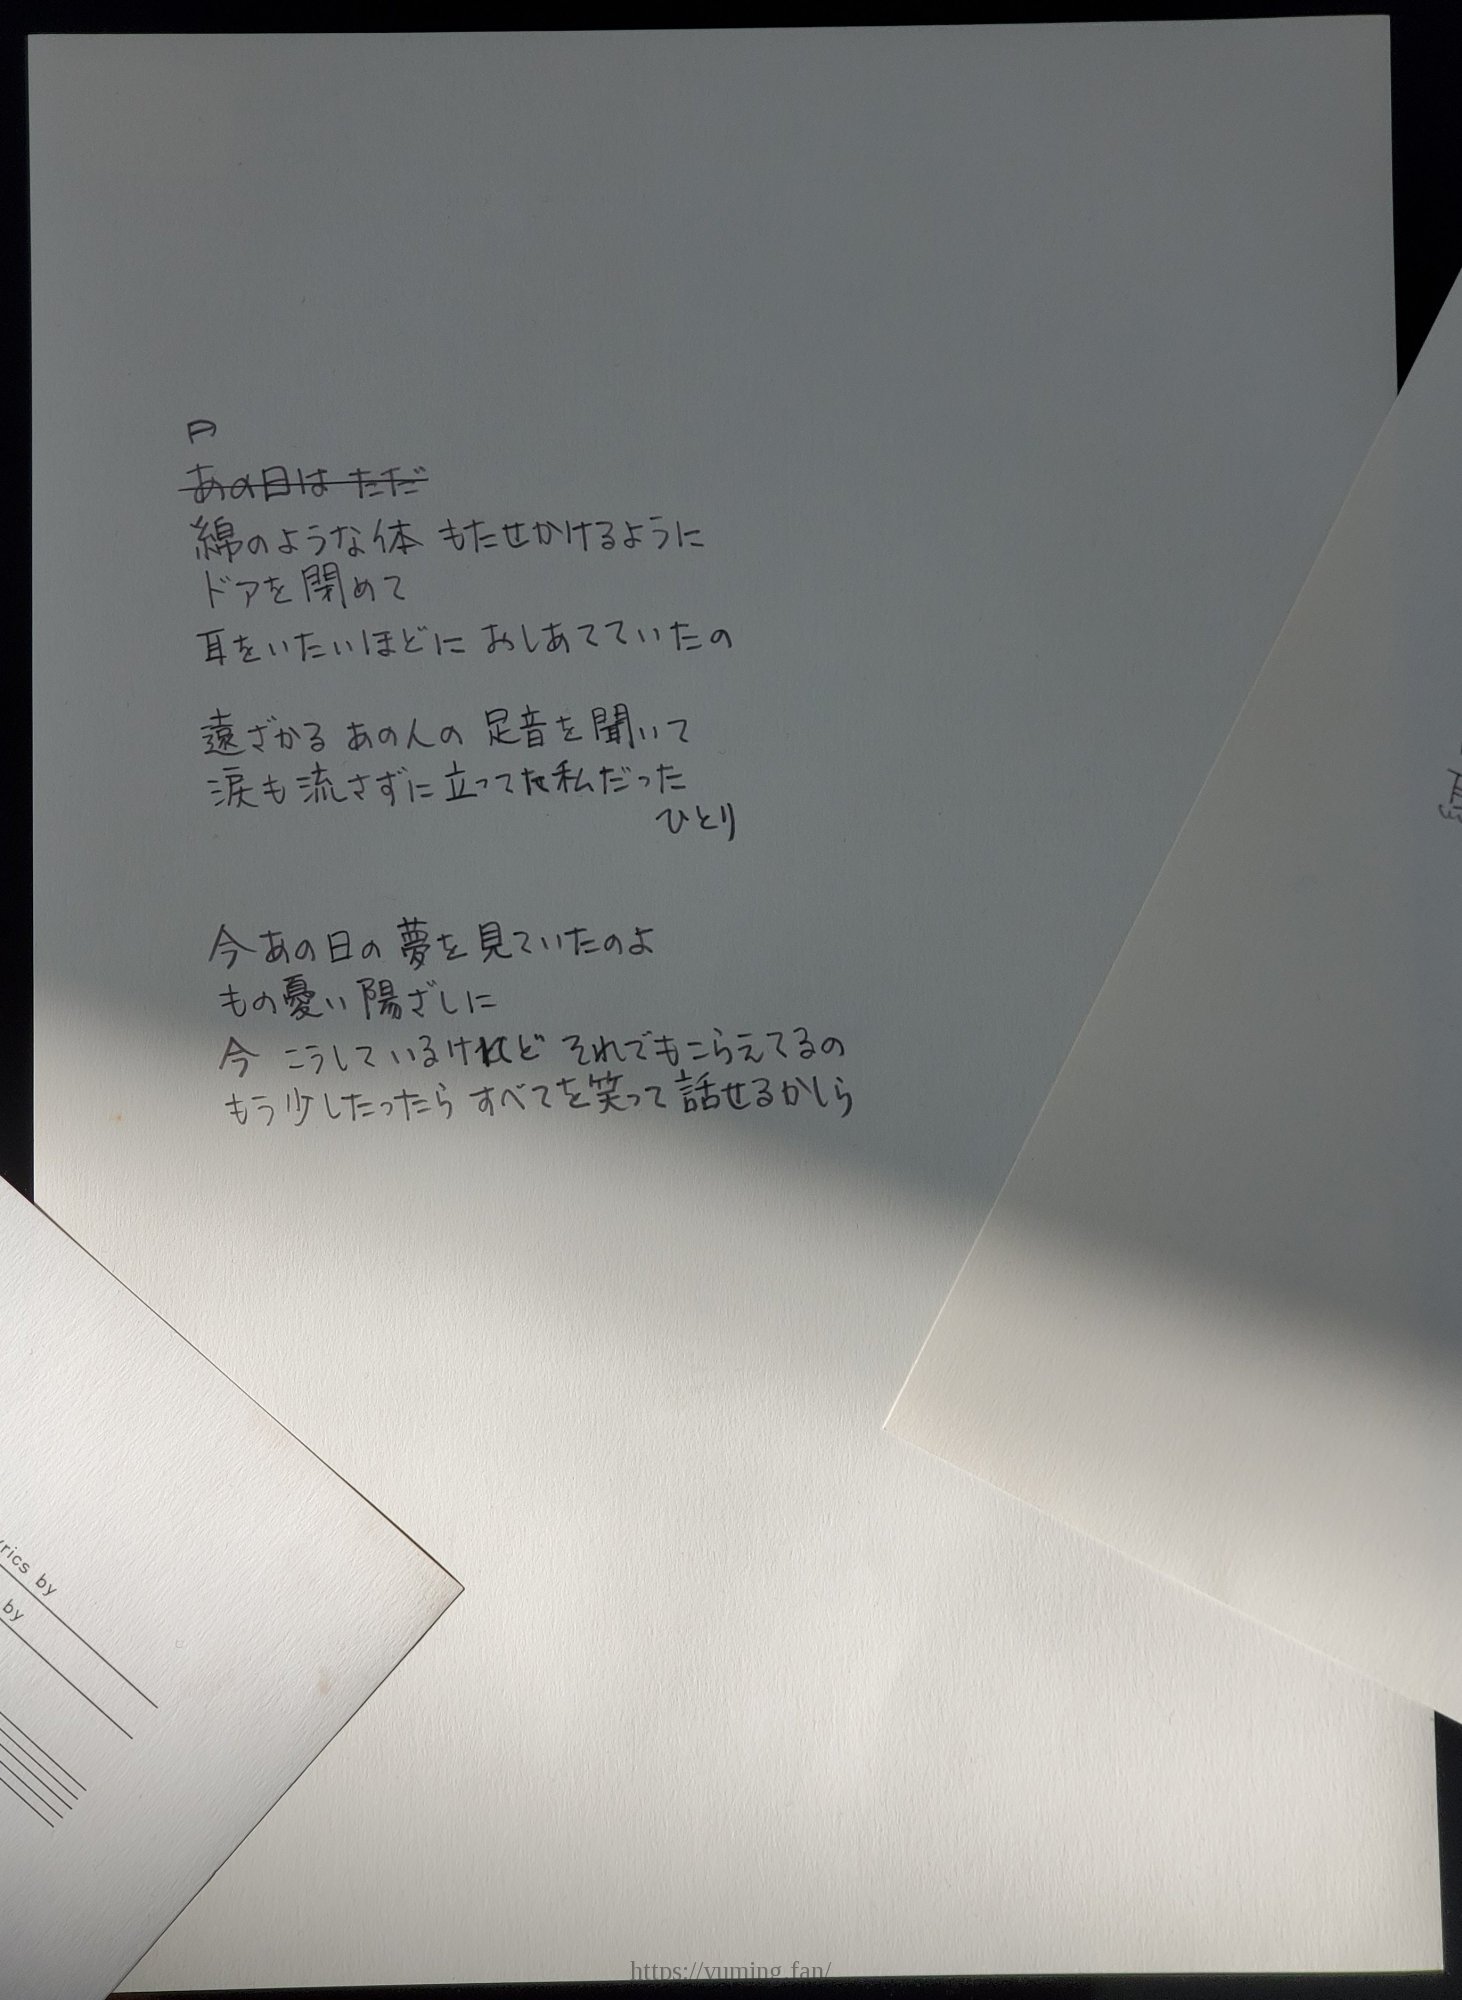 A
あの日は ただ
綿のような体 もたせかけるように
ドアを閉めて
耳をいたいほどに おしあてていたの
遠ざかる あの人の 足音を聞いて
涙も流さずに立ってた私だった
ひとり
今あの日の夢を見ていたのよ
もの憂い陽ざしに
今 こうしているけれど それでもこらえてるの
もう少したったら すべてを笑って話せるかしら
rics by
by
https://yuming.fan/